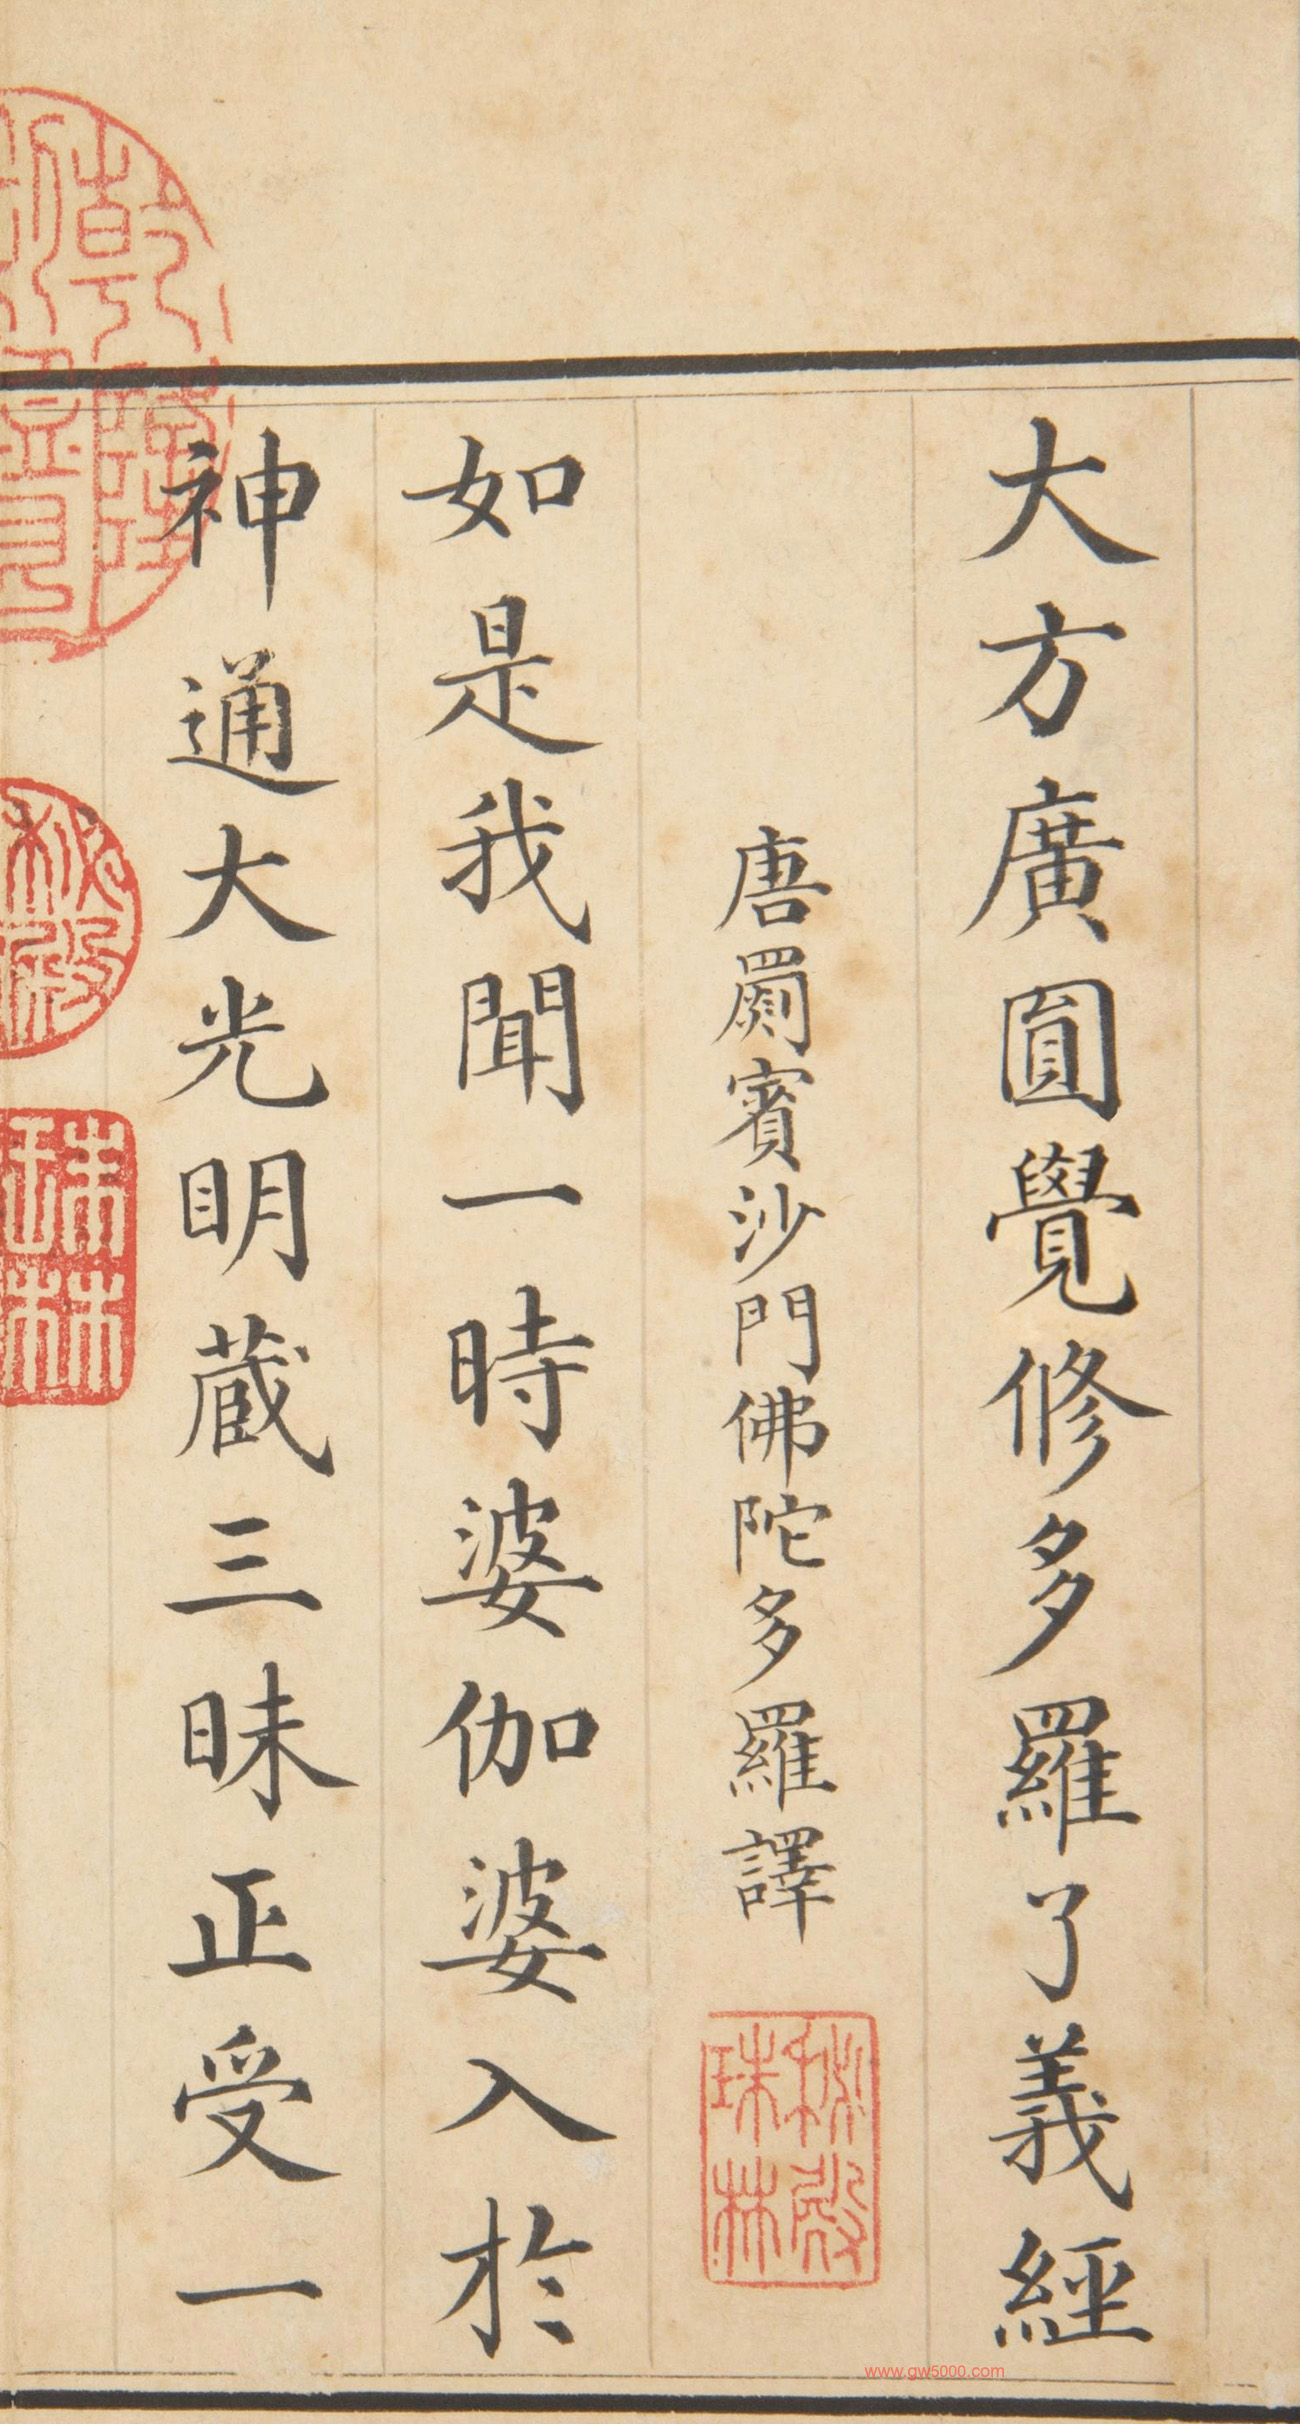 大方廣圓覺修多羅了義經
唐罽賓沙門佛陀多羅譯
秘殿珠林
如是我聞一時婆伽婆入於
神通大光明蔵三昧正受一
乾隆
秘殿
珠林
www.gw5000.com